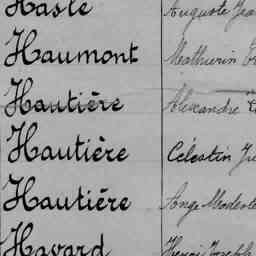 Haste Auguste Jea
Haumont Mathurin Fr
Hautière Alexandre C
Hautière Célestin Ju
Hautière Ange Modeste
Havard Henri Joseph